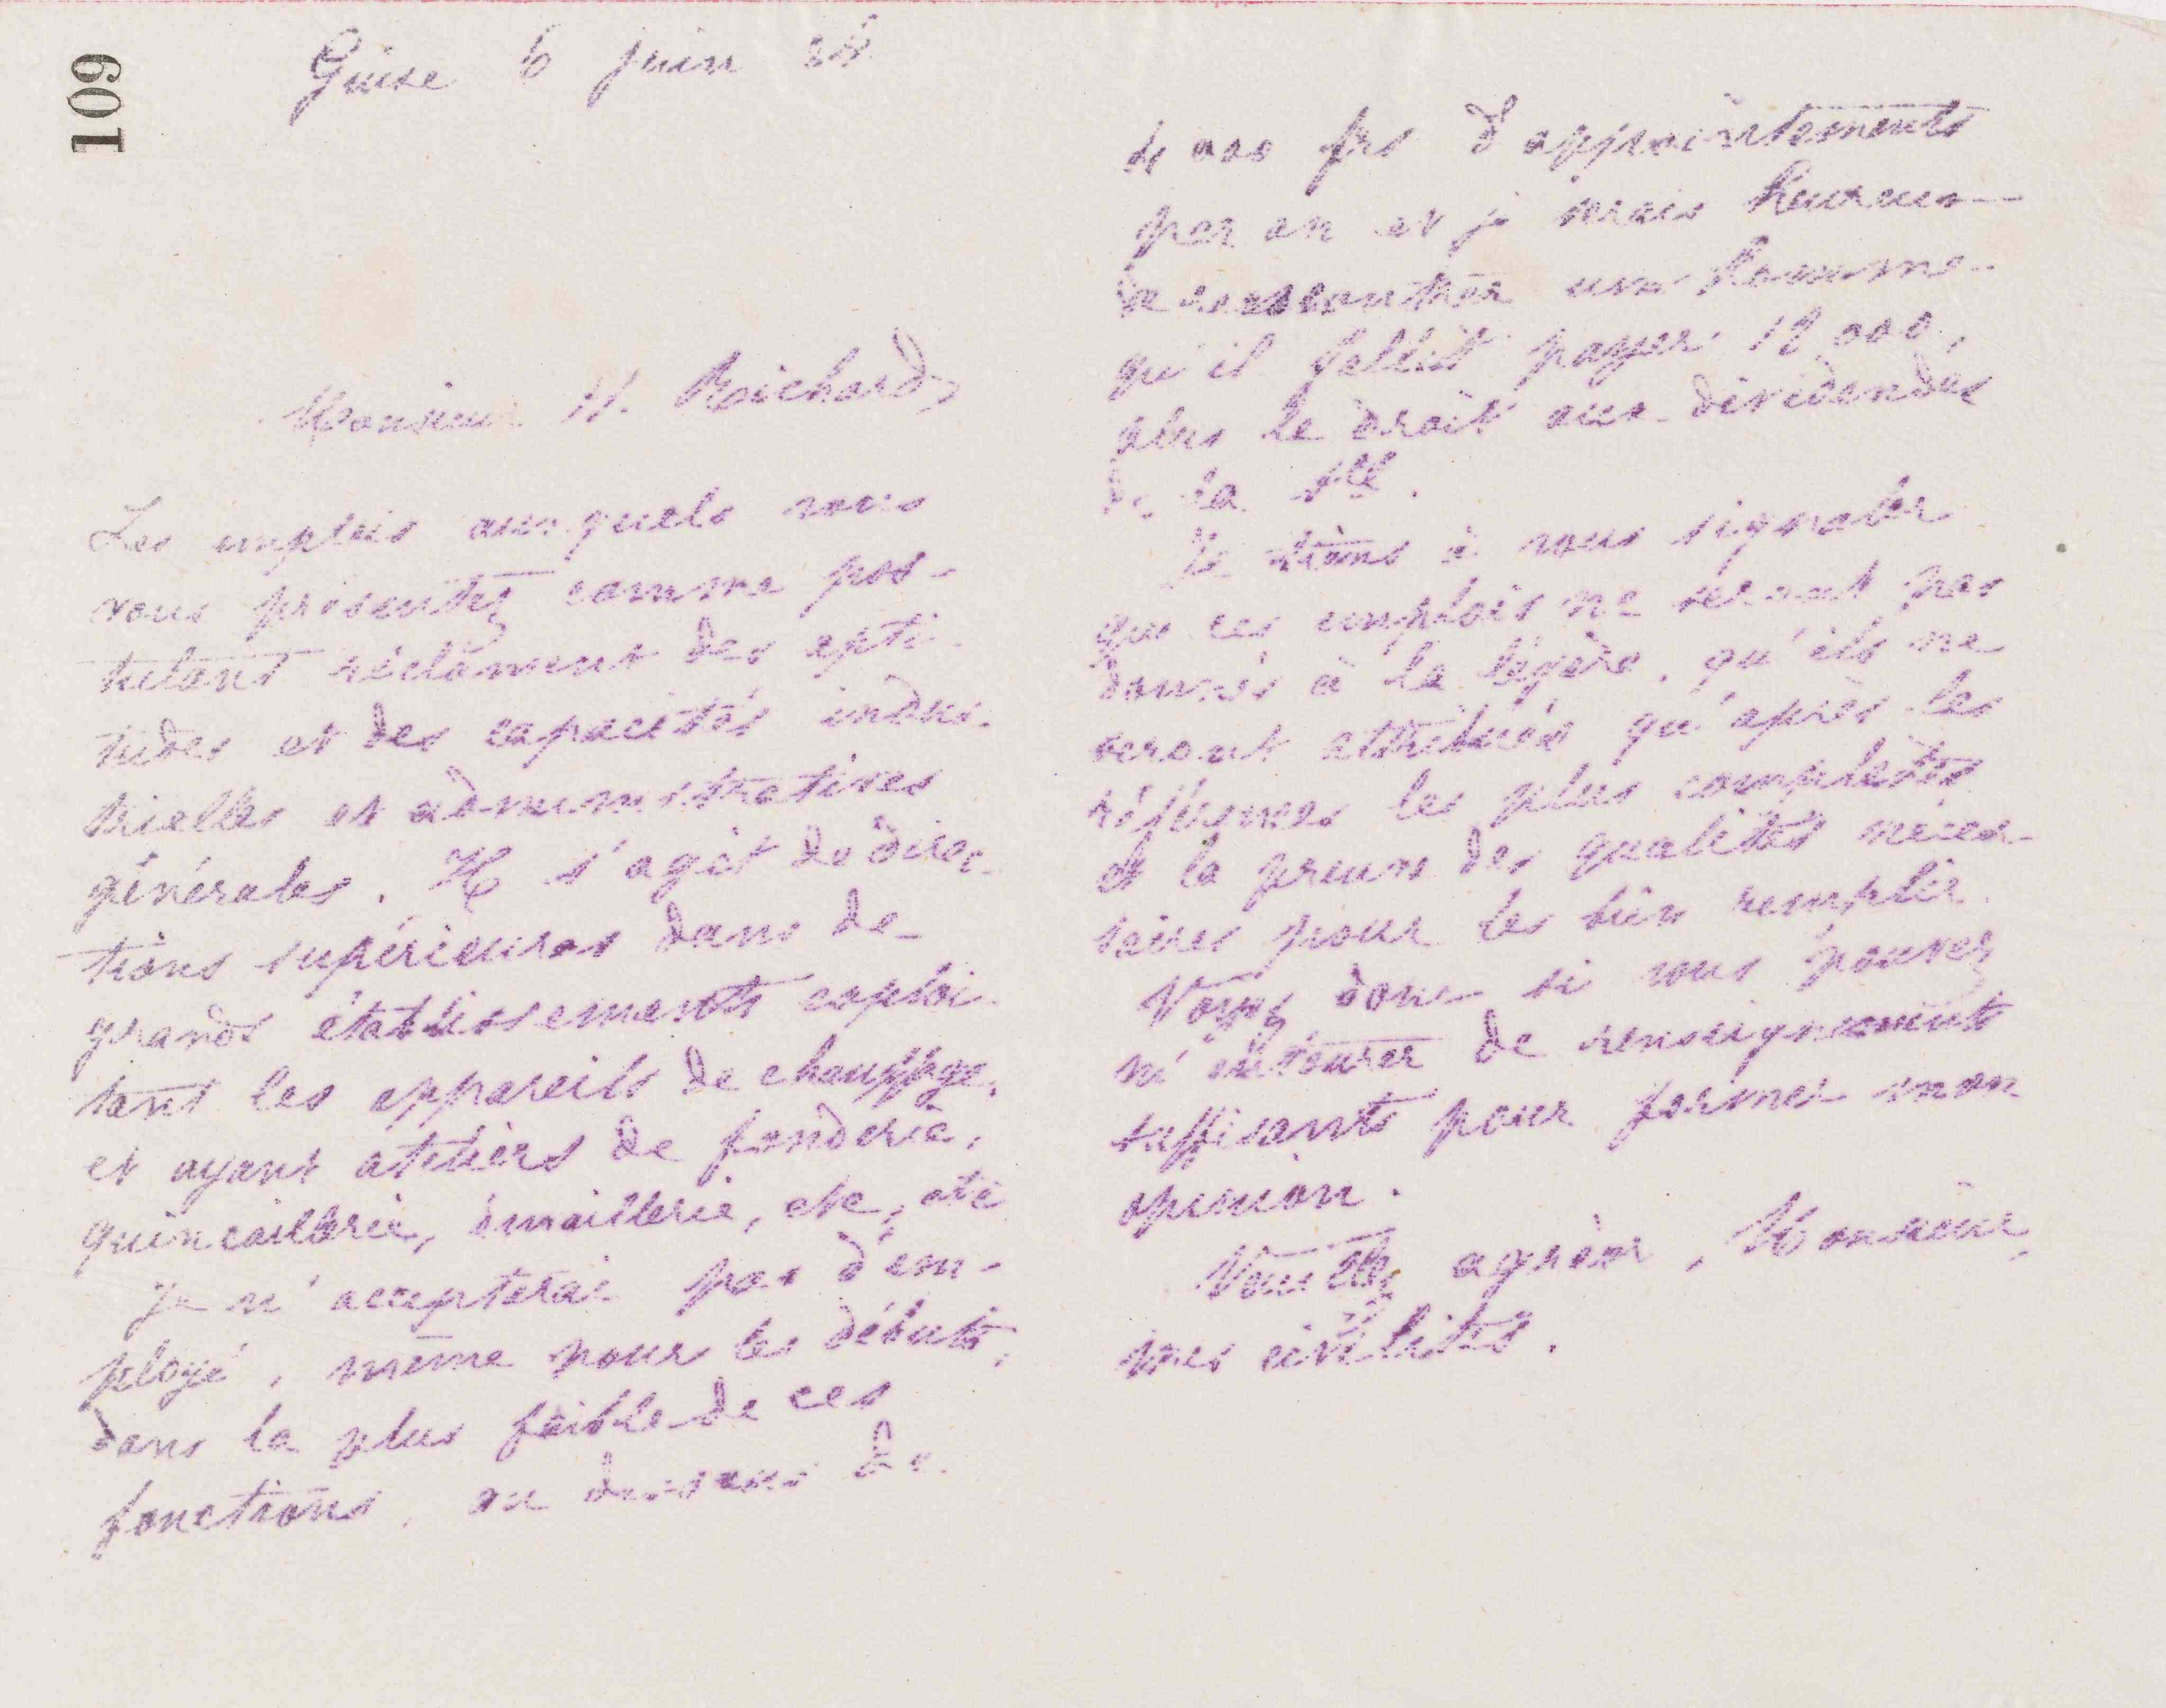 109
Guise 6 juin
Monsieur H. Richard,
Les emplois auxquels vous
vous présentez comme pos-
tulant réclament des apti-
tudes et des capacités indus-
trielles et administratives
générales. Il s'agit de direc-
tions supérieures dans de
grands établissements exploi-
tant les appareils de chauffage,
et ayant ateliers de fonderie,
quincaillerie, émaillerie, etc, etc
Je n'accepterai pas d'em-
ployé, même pour les débuts,
dans la plus faible de ces
fonctions, au dessous de
4 000 frs d'appointements
par an et je serais heureux
de rencontrer un homme
qu'il fallût payer 12 000,
plus le droit aux dividendes
de la Sté.
Je tiens à vous signaler
que ces emplois ne seront pas
donnés à la légère, qu'ils ne
seront attribués qu'après les
références les plus complètes
et la preuve des qualités néces-
saires pour les bien remplir.
Voyez donc si vous pouvez
m'entourer de renseignements
suffisants pour former mon
opinion.
Veuillez agréer, Monsieur,
mes civilités.